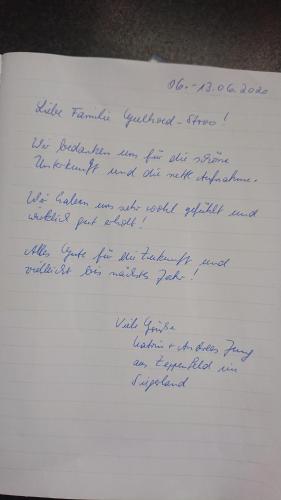 06.-13.06.2020
Liebe Familie
Wir bedanken uns für die schöne
Unterkunft und die nette Aufnahme.
Wir haben uns sehr wohl gefühlt und
wirklich gut erholt!
Alles Gute für die Zukunft und
vielleicht bis nächstes Jahr!
Viele Grüße
Katrin + Andreas Jung
aus Zeppenfeld im
Siegerland